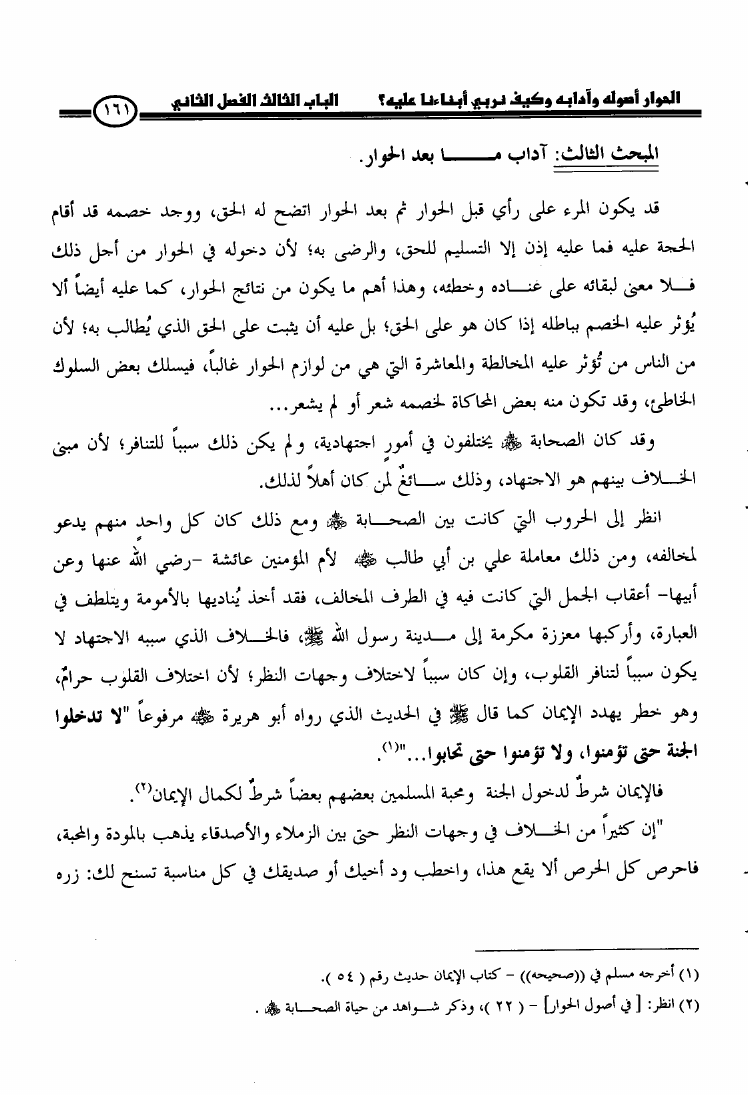 الحوار أصوله وآدابه وكيف نربي أبناءنا عليه؟ الباب الثالث الفصل الثاني ١٦١
المبحث الثالث: آداب مـــــا بعد الحوار.
قد يكون المرء على رأي قبل الحوار ثم بعد الحوار اتضح له الحق، ووجد خصمه قد أقام
الحجة عليه فما عليه إذن إلا التسليم للحق، والرضى به؛ لأن دخوله في الحوار من أجل ذلك
فـــلا معنى لبقائه على عنـــاده وخطئه، وهذا أهم ما يكون من نتائج الحوار، كما عليه أيضاً ألا
يُؤثر عليه الخصم بباطله إذا كان هو على الحق؛ بل عليه أن يثبت على الحق الذي يُطالب به؛ لأن
من الناس من تُؤثر عليه المخالطة والمعاشرة التي هي من لوازم الحوار غالباً، فيسلك بعض السلوك
الخاطئ، وقد تكون منه بعض المحاكاة لخصمه شعر أو لم يشعر...
وقد كان الصحابة ﷺ يختلفون في أمورٍ اجتهادية، ولم يكن ذلك سبباً للتنافر؛ لأن مبنى
الخـــلاف بينهم هو الاجتهاد، وذلك ســـائغٌ لمن كان أهلاً لذلك.
انظر إلى الحروب التي كانت بين الصحـــابة ﷺ ومع ذلك كان كل واحدٍ منهم يدعو
لمخالفه، ومن ذلك معاملة علي بن أبي طالب ﷺ لأم المؤمنين عائشة -رضي الله عنها وعن
أبيها- أعقاب الجمل التي كانت فيه في الطرف المخالف، فقد أخذ يُناديها بالأمومة ويتلطف في
العبارة، وأركبها معززة مكرمة إلى مـــدينة رسول الله ﷺ، فالخـــلاف الذي سببه الاجتهاد لا
يكون سبباً لتنافر القلوب، وإن كان سبباً لاختلاف وجهات النظر؛ لأن اختلاف القلوب حرامٌ،
وهو خطر يهدد الإيمان كما قال ﷺ في الحديث الذي رواه أبو هريرة ﷺ مرفوعاً "لا تدخلوا
الجنة حتى تؤمنوا، ولا تؤمنوا حتى تحابوا..."(١).
فالإيمان شرطٌ لدخول الجنة ومحبة المسلمين بعضهم بعضاً شرطٌ لكمال الإيمان(٢).
"إن كثيراً من الخـــلاف في وجهات النظر حتى بين الزملاء والأصدقاء يذهب بالمودة والمحبة،
فاحرص كل الحرص ألا يقع هذا، واخطب ود أخيك أو صديقك في كل مناسبة تسنح لك: زره
(١) أخرجه مسلم في ((صحيحه)) - كتاب الإيمان حديث رقم ( ٥٤ ).
(٢) انظر: [ في أصول الحوار] - ( ٢٢ )، وذكر شـــواهد من حياة الصحـــابة ﷺ .